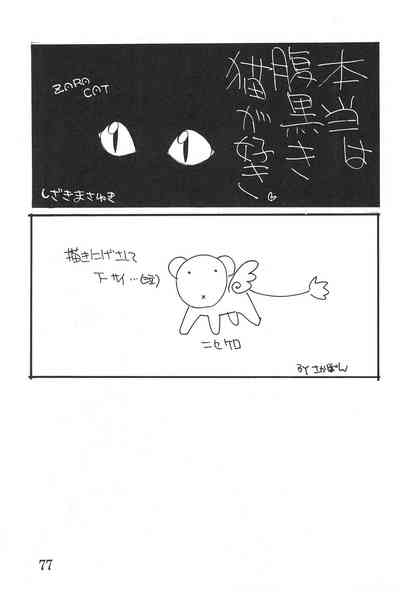 本当は
腹黒き
猫が好き
ZARA
CAT
しざきまさゆき
描きにげさせて
下サイ…(泣)
ニセケロ
BY さかぽん
77